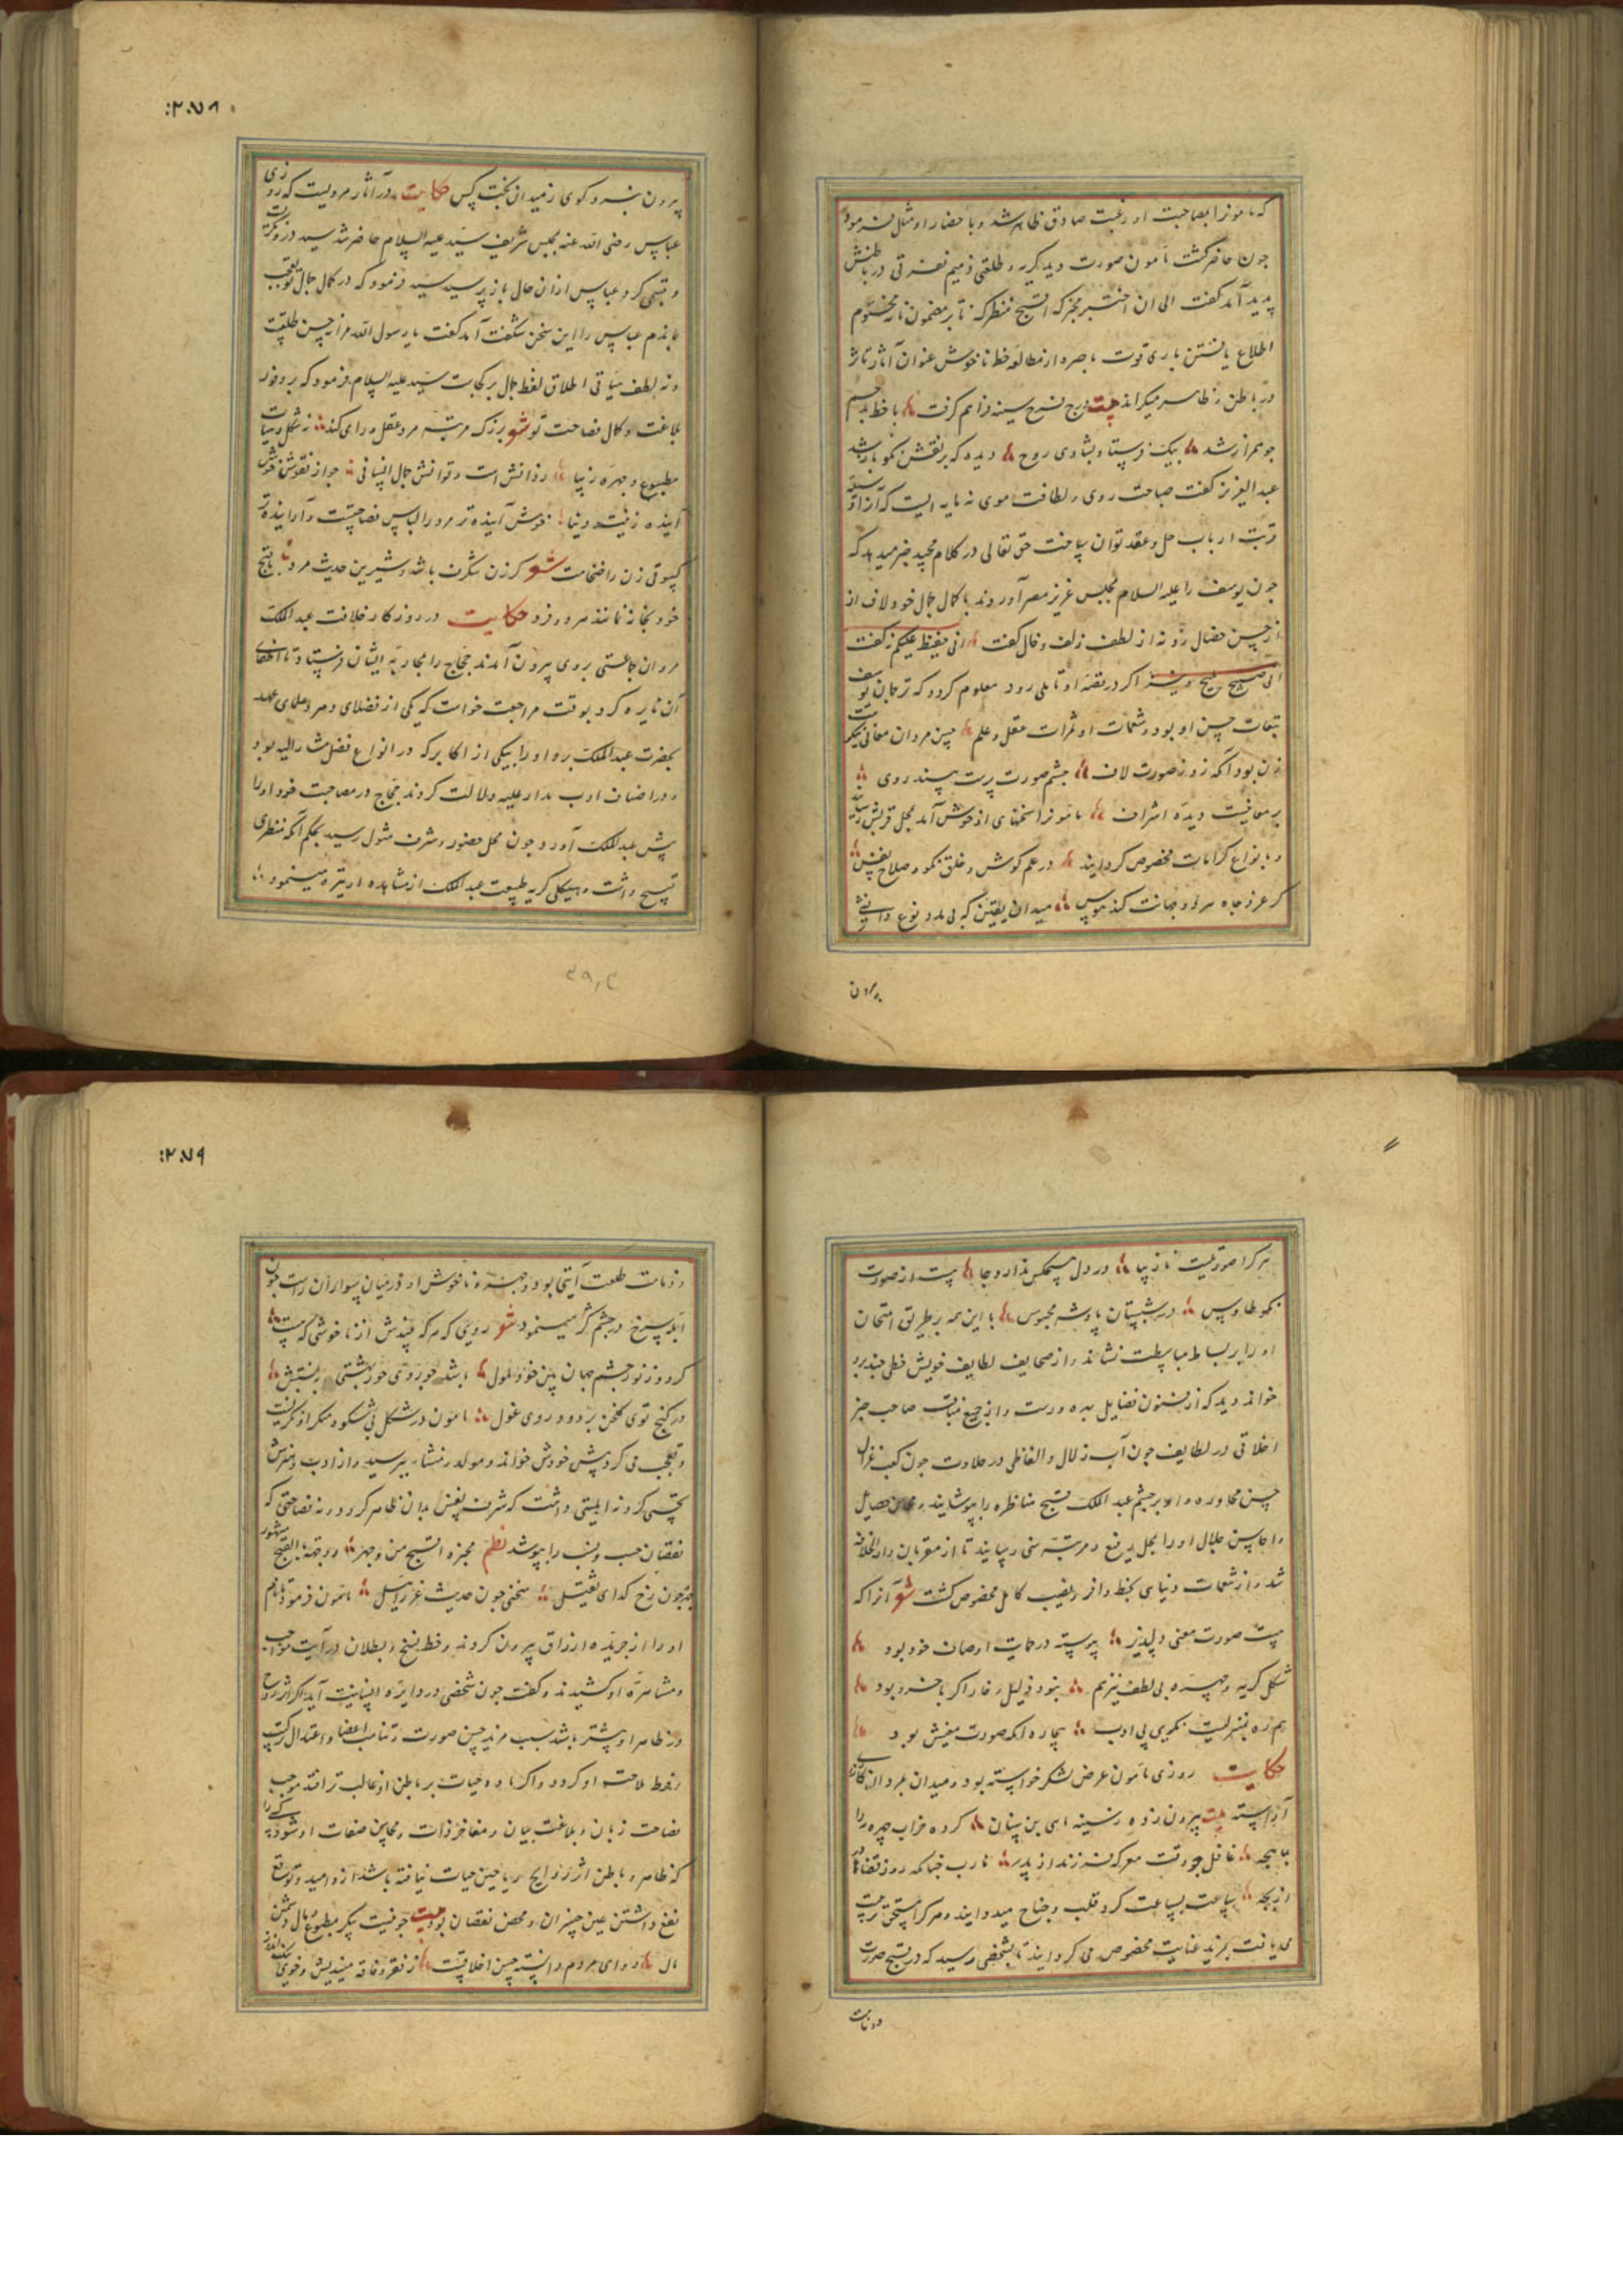 که مامونرا بمصاحبت او رغبت صادق ظاهر شد و باحضار او مثل فرمود
چون حاضر گشت مامون صورت دید کریه و طلعتی ذمیم نفرتی در باطنش
پدید آمد گفت الی ان اختبر مخبرکه اقبح منظرکه تا بر مضمون نامه مختوم
اطلاع یافتن باری قوت باصره از مطالعه خط ناخوش عنوان آثار تاثر
در باطن و ظاهر میگرداند بیت فرح سینه فراهم گرفت با خط بد جسم
جو همراز شد پیک فرستاد بشادی روح دیده که بر نقش نکو باز شد
عبد العزیز گفت صباحت روی و لطافت موی نه مایه ایست که آنرا وسیلت
قربت ارباب حل و عقد توان ساخت حق تعالی در کلام مجید خبر میدهد که
چون یوسف را علیه السلام بمجلس عزیز مصر آوردند با کمال جمال خود لاف از
از حسن خصال زد نه از لطف زلف و خال گفت انی حفیظ علیم نگفت
انی صبیح ملیح و نیز اگر در قصه او تاملی رود معلوم گردد که ترجمان یوسف
تبعات حسن او بود و شمات او ثمرات عقل و علم حسن مردان معانی نیکست
زن بود آنکه زند صورت لاف چشم صورت پرست بیند روی
بر معانیست دیده اشراف مامونرا سخنهای او خوش آمد بمحل قربتش رسانید
و بانواع کرامات مخصوص گردانید در علم کوش و خلق نکو و صلاح نفس
گر عز و جاه هر دو جهانت کند هوس میدان یقین که بی مدد نوع دانشی
بیرون
۲۰۷۸
بیرون نبرد گوی ز میدان بخت کس حکایت در آثار مرویست که روزی
عباس رضی الله عنه بمجلس شریف سید علیه السلام حاضر شد سید درو نگریست
و تبسمی کرد عباس از آن حال باز پرسید سید فرمود که در کمال جمال تو تعجب
ماندم عباس را این سخن شگفت آمد گفت یا رسول الله مرا نه حسن طلعتیست
و نه لطف هیأتی اطلاق لفظ جمال بر کجاست سید علیه السلام فرمود که بر وفور
بلاغت و کمال فصاحت تو شعر بزرگ مرتبه مرد عقل و رای کند ز شکل و هیأت
مطبوع و چهره زیبا روانش است و توانش جمال انسانی جو از نقوش خوش
آینده زینت دنیا خوش آینده تر مرد را لباس فصاحتست و آراینده تر
کسوتی زن را ضخامت شعر گر زن شگرف باشد و شیرین حدیث مرد با هیچ
خود بخانه نمانند مرد و فرد حکایت در روزگار خلافت عبد الملک
مروان جماعتی بروی بیرون آمدند حجاج را بمحاربه ایشان فرستاد تا اطفای
آن نایره کرد بوقت مراجعت خواست که یکی از فضلای دهر و علمای عهد
بحضرت عبد الملک برد او را بیکی از اکابر که در انواع فضل مشار الیه بود
و در اصناف ادب مدار علیه دلالت کردند حجاج در مصاحبت خود او را
پیش عبد الملک آورد و چون بمحل حضور و شرف مثول رسید بحکم آنکه منظری
قبیح داشت و هیکلی کریه طبیعت عبد الملک از مشاهده او تیره مینمود
۳۹٫۳
هر کرا صورتیست نازیبا در دل هیچکس ندارد جا هست از صورت
نکو طاوس در شبستان پادشه محبوس با این همه بر طریق امتحان
او را بر بساط مباسطت نشاند و از صحایف لطایف خویش خطی چند برو
خواند دید که از فنون فضایل بهره ورست و از جمیع صاحب خبر
اخلاقی در لطایف چون آب زلال و الفاظی در حلاوت چون لب غزال
حسن محاوره او بر چشم عبد الملک قبح مناظره را بپوشانید و محاسن خصایل
و احاسن جلال او را بمحل رفیع و مرتبه سنی رسانید تا از مقربان دار الخلافه
شد و از نعمات دنیای بحظ وافر و نصیب کامل مخصوص گشت شعر آنرا که
هست صورت معنی دلپذیر پیوسته در حمایت اوصاف خود بود
شکل کریه و چهره بی لطف نیز هم نبود ذلیل و خار اگر با خرد بود
هم ره بمنزلیست نکوی بی ادب بیچاره آنکه صورت معنیش بود
حکایت روزی مامون عرض لشکر خواسته بود و میدان بمرد
آراسته بیت بیرون زده ز سینه اسی بن سنان کرده خراب چهره را
بناهنجه غافل بوقت معرکه فرزند از پدر هارب چنانکه روز قضا
از بچه ساعت بساعت گرد قلب و جناح میدوانید و هر کرا مستحق تربیت
می یافت بمزید عنایت مخصوص می گردانید تا بشخصی رسید که در قبح صورت
و ذمامت
۲۰۷۹
و ذمامت طلعت آیتی بود و چهره ناخوش او در میان سواران راست چون
آبله سرخ در چشم کژ مینمود شعر رویی که هر که بیندش از ناخوشی که هست
گردد ز نور چشم جهان بین خود ملول باشد جو روی حور بهشتی بنسبتش
در کنج توی گلخن پر دود روی غول مامون در شکل بی شکوه منکر او نگریست
و تعجب می کرد پیش خودش خواند و مولد و منشاء پرسید و از ادب و هنرش
تجسس کرد نه اهلیتی داشت که شرف نفس بدان ظاهر گردد و نه فصاحتی که
نقصان حسب و نسب را بپوشد نظم مخبره اقبح من وجهه و وجهه بالقبح مشهور
چهره چون رخ گدای ثقیل سخنی چون حدیث عزراییل مامون فرمود تا نام
او را از جریده ارزاق بیرون کردند و خط نسخ و بطلان در آیت مواجب
و مشاهره او کشیدند و گفت چون شخصی در دایره انسانیت آید اگر اثر روح
در ظاهر او بیشتر باشد سبب مزید حسن صورت و تناسب اعضا و اعتدال ترکیب
و فرط ملاحت او گردد و اگر ماده حیات بر باطن او غالب تر افتد موجب
فصاحت زبان و بلاغت بیان و مفاخر ذات و محاسن صفات او شود کسی را
که ظاهر و باطن اثر روایح ریاحین حیات نیافته باشد ازو امید و توقع
نفع داشتن عین خسران و محض نقصان بود بیت جو نیست پیکر مطبوع و مال و دشمن
مال ورای مردم دانسته حسن اخلاقیست ز فقر و فاقه میندیش و خوی نیک اندوز